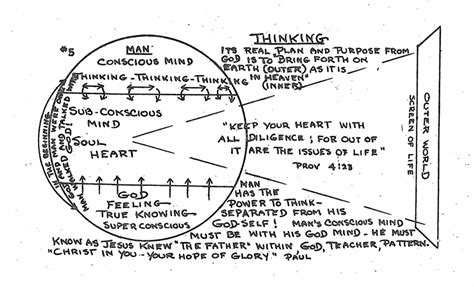 #5
MAN
CONSCIOUS MIND
THINKING-THINKING-THINKING
SUB-CONSCIOUS
MIND
SOUL
HEART
GOD
FEELING
TRUE KNOWING
SUPER CONSCIOUS
IN THE BEGINNING
GOD AND MAN WERE ONE
MAN WALKED AND TALKED WITH GOD!
THINKING
ITS REAL PLAN AND PURPOSE FROM
GOD IS TO "BRING FORTH ON
EARTH (OUTER) AS IT IS
IN HEAVEN"
(INNER)
"KEEP YOUR HEART WITH
ALL DILIGENCE; FOR OUT OF
IT ARE THE ISSUES OF LIFE"
PROV 4:23
OUTER WORLD
SCREEN OF LIFE
MAN
HAS THE
POWER TO THINK-
SEPARATED FROM HIS
GOD-SELF! MAN'S CONSCIOUS MIND
MUST BE WITH HIS GOD MIND - HE MUST
KNOW AS JESUS KNEW "THE FATHER" WITHIN GOD, TEACHER, PATTERN.
"CHRIST IN YOU - YOUR HOPE OF GLORY" PAUL